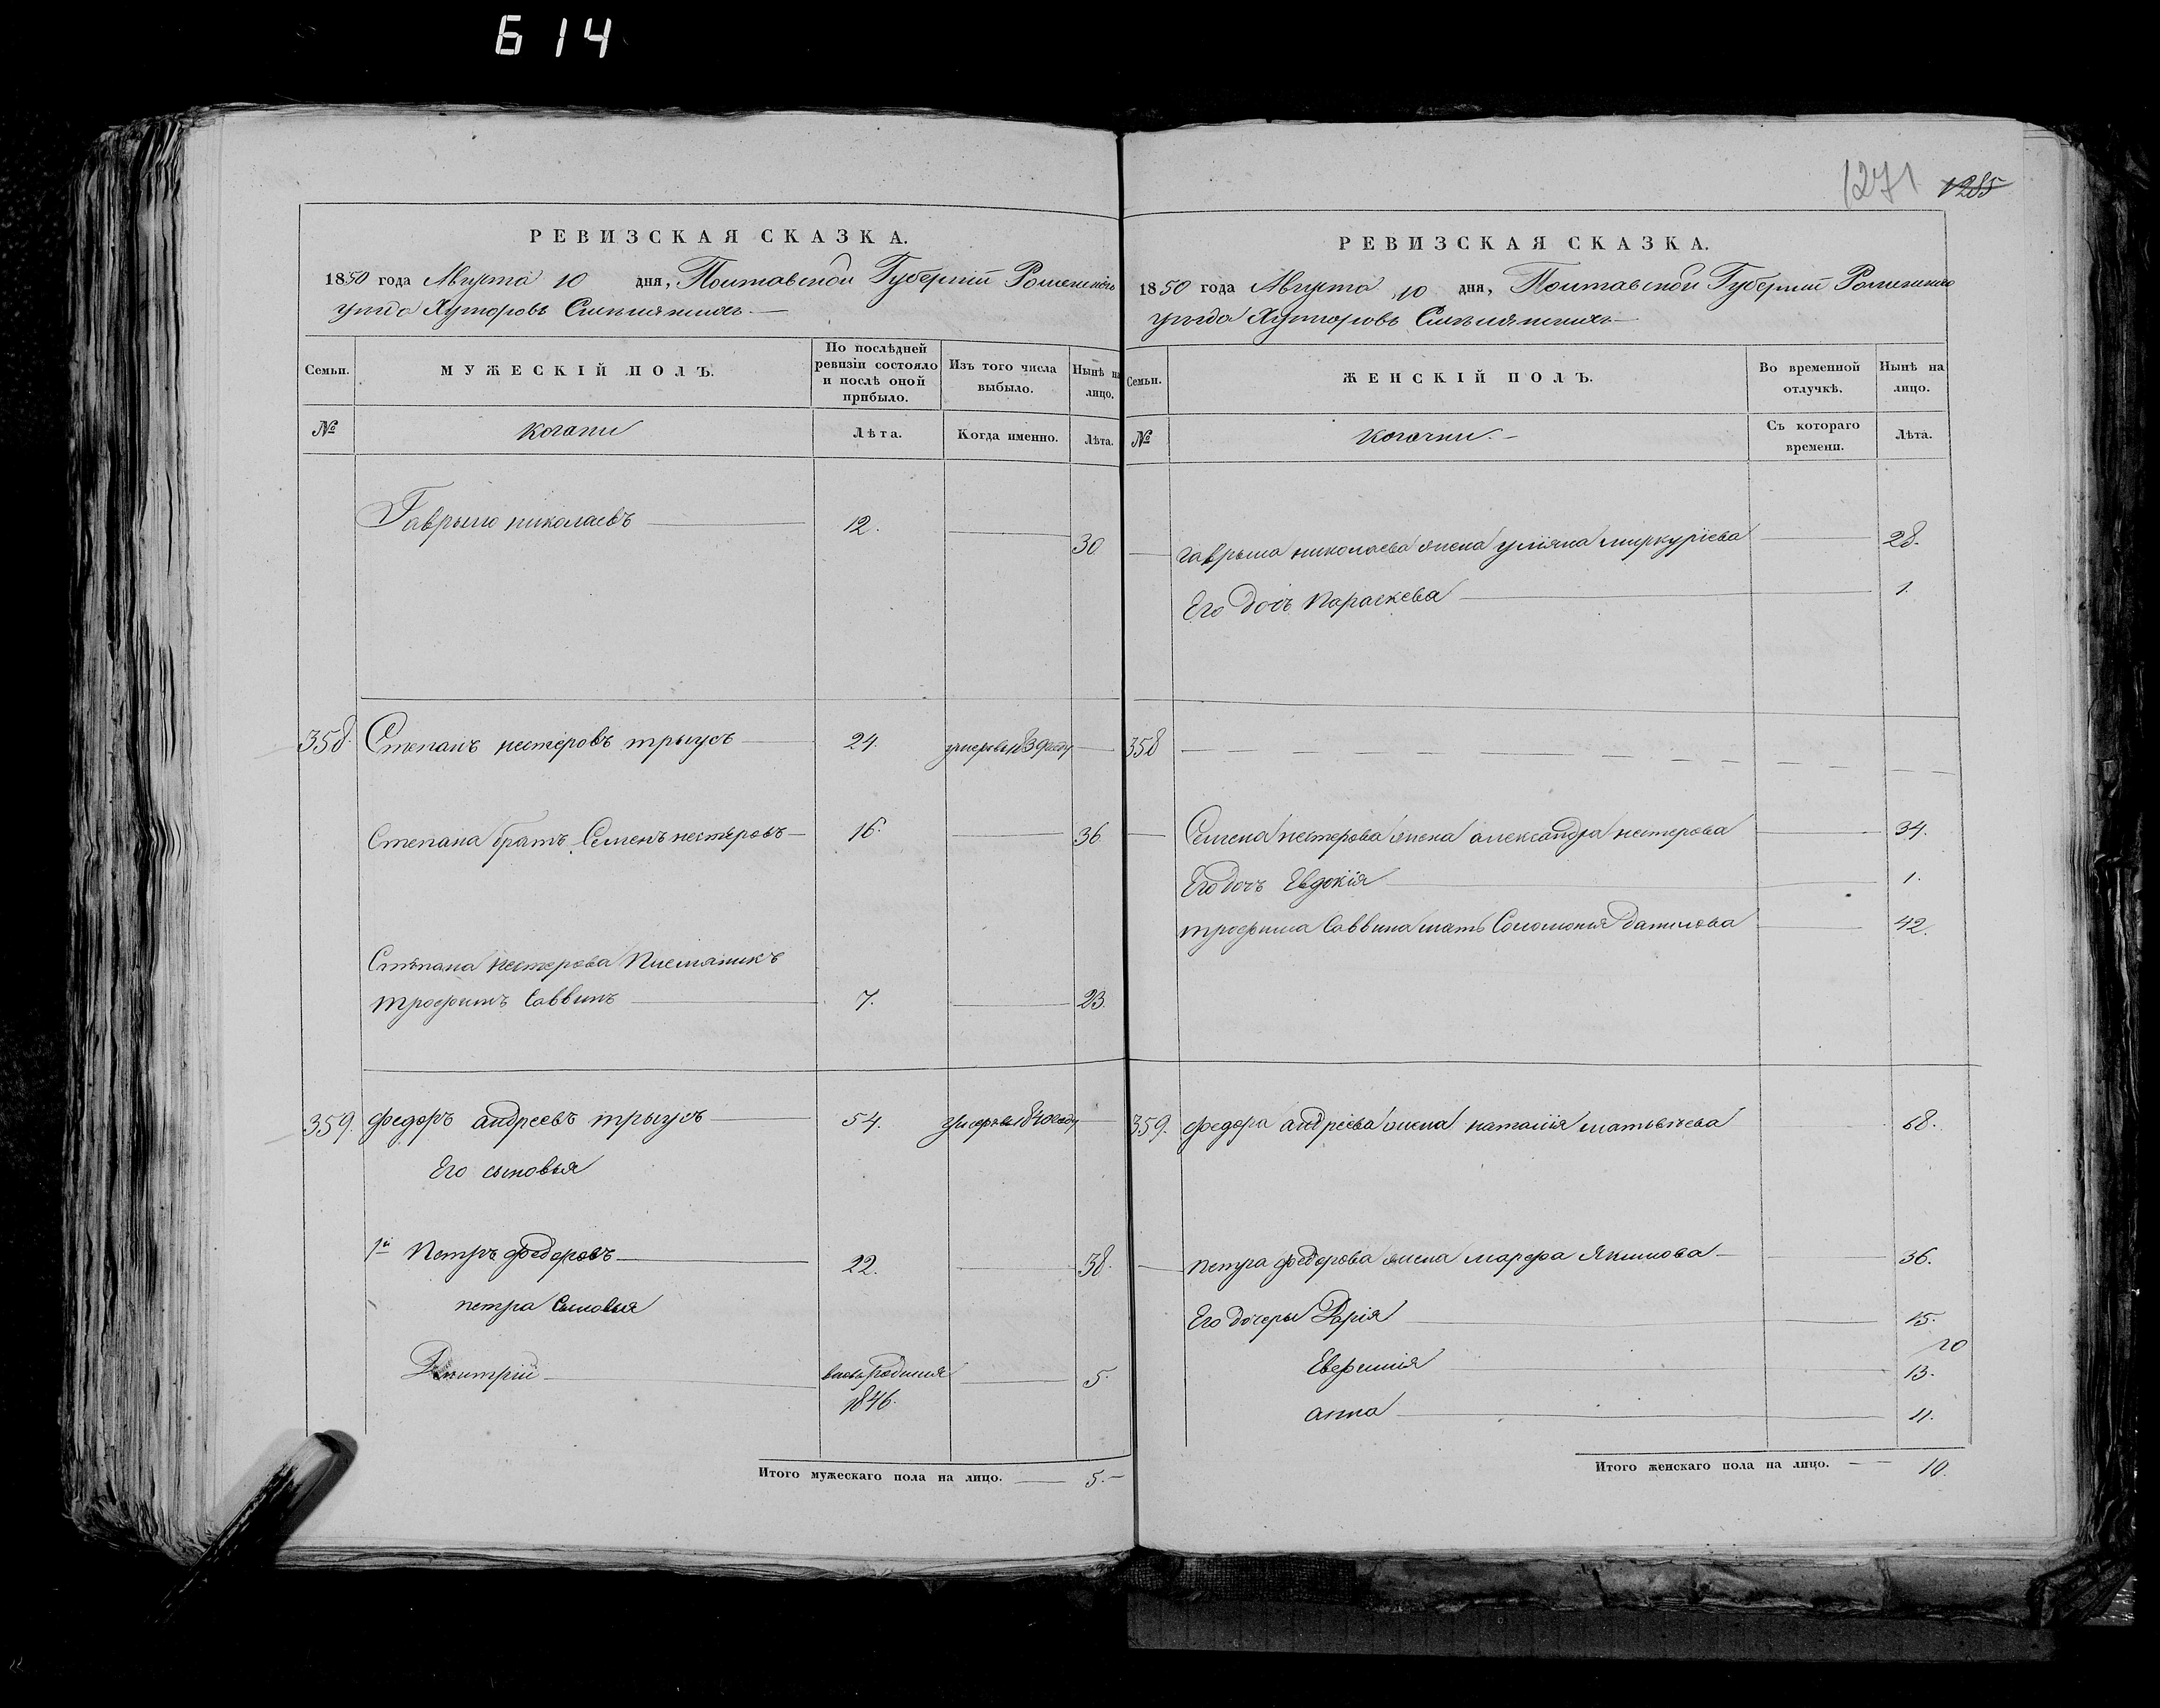 614
РЕВИЗСКАЯ СКАЗКА.
1850 года Августа 10 дня, Полтавской Губерніи Роменскаго
уезда Хуторовъ
МУЖЕСКІЙ ПОЛЪ.
Семьи.
По послѣдней
ревизіи состояло
и послѣ оной
прибыло.
Изъ того числа
выбыло.
Нынѣ на
лицо.
№
козаки
Лѣта.
Когда именно.
Лѣта.
Гаврыло николаевъ 12. 30
358. Степанъ нестеровъ трыусъ 24. умеръ въ 1839 году
Степана братъ Семенъ нестеровъ 16. 36
Степана нестерова Племяникъ
трофимъ Саввинъ 7. 23.
359. федоръ андреевъ трыусъ 54. умеръ въ 1840 году
Его сыновья
1й Петръ федоровъ 22. 38.
петра Сыновья
Дмитрій вновь родился 5.
1846.
Итого мужескаго пола на лицо. 5.
1271 1285
РЕВИЗСКАЯ СКАЗКА.
1850 года Августа 10 дня, Полтавской Губерніи Роменскаго
уезда Хуторовъ
Семьи.
ЖЕНСКІЙ ПОЛЪ.
Во временной
отлучкѣ.
Нынѣ на
лицо.
№
козачки.
Съ котораго
времени.
Лѣта.
гаврыла николаева жена уліяна миркуріева 28.
Его дочь Параскева 1.
358
Семена нестерова жена александра нестерова 34.
Его дочь Евдокія 1.
трофима Саввина мать Соломонія данилова 42.
359. федора андріева жена наталія матьвѣева 68.
петра федорова жена марфа Якимова 36.
Его дочеры Дарія 15.
Евфимія 13.
анна 11.
Итого женскаго пола на лицо. 10.